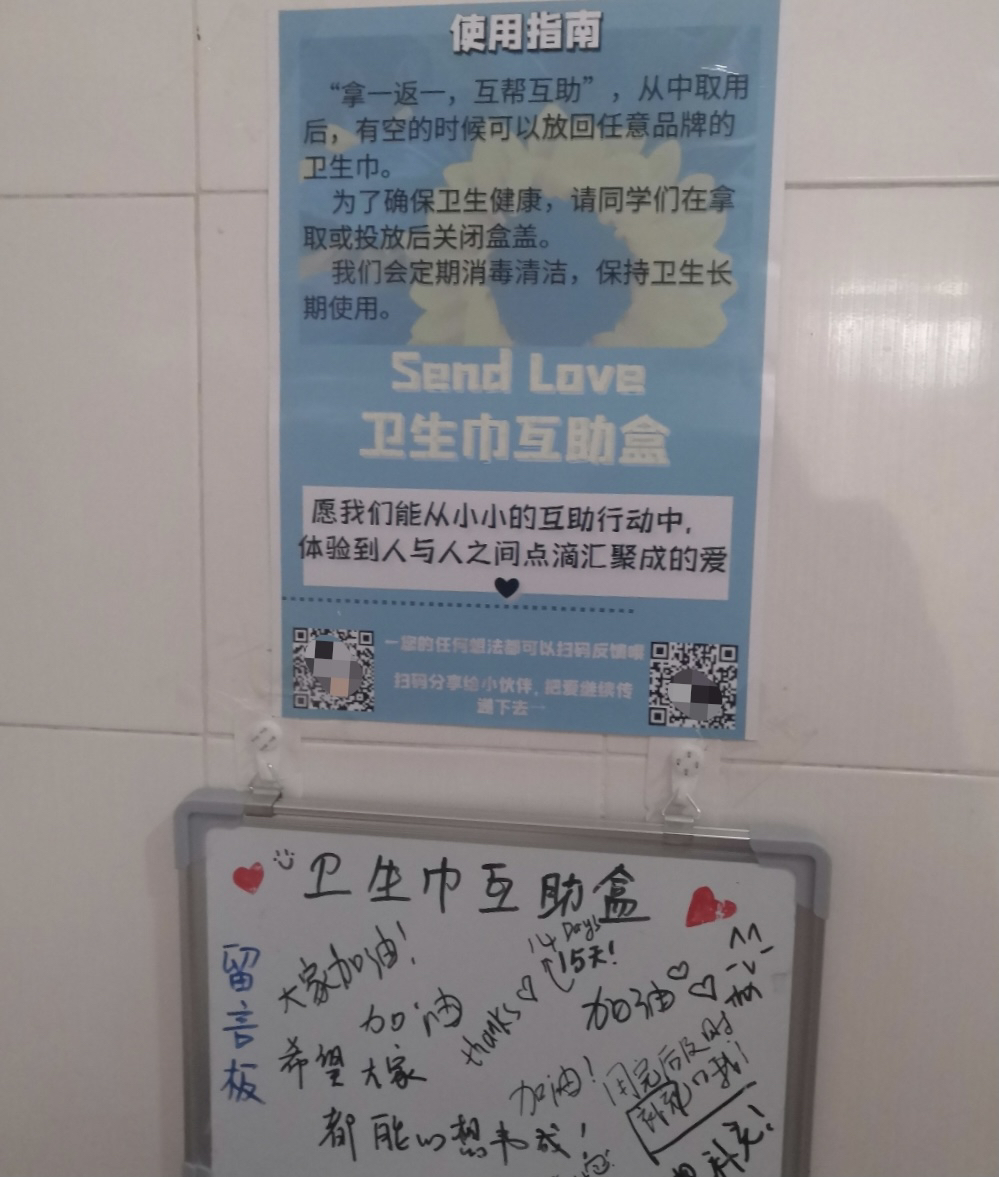 使用指南
“拿一返一，互帮互助”，从中取用
后，有空的时候可以放回任意品牌的
卫生巾。
为了确保卫生健康，请同学们在拿
取或投放后关闭盒盖。
我们会定期消毒清洁，保持卫生长
期使用。
Send Love
卫生巾互助盒
愿我们能从小小的互助行动中，
体验到人与人之间点滴汇聚成的爱
←您的任何想法都可以扫码反馈噢
扫码分享给小伙伴，把爱继续传
递下去→
卫生巾互助盒
留言板
大家加油！
14 Days
15天！
加油
thanks
加油
希望大家
都能心想事成！
加油！
用完后及时
补充！